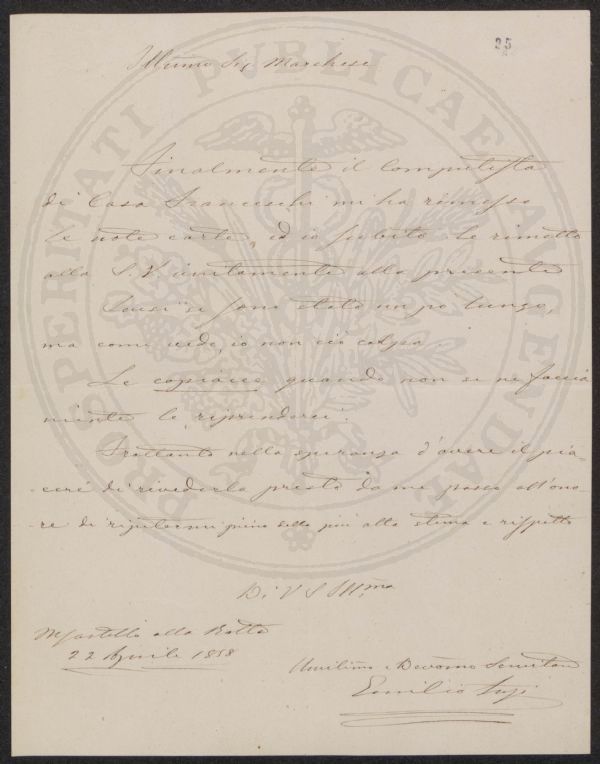 25
Illmmo Sig Marchese
Finalmente il computista
di Casa Franceschi mi ha rimesso
le note carte, ed io subito le rimetto
alla S. V. unitamente alla presente
Scusi se sono stato un po lungo,
ma come vede, io non ciò colpa.
Le copiacce quando non se ne faccia
niente le riprenderei.
Frattanto nella speranza d'avere il pia-
cere di rivederla presto da me passo all'ono-
re di ripetermi pieno della più alta stima e rispetto
Di V S Ill,ma
Castello alla
22 Aprile 1858
Umilmo e Devotmo Servitore
Emilio
PROSPERITATI PUBLICAE AUGENDAE